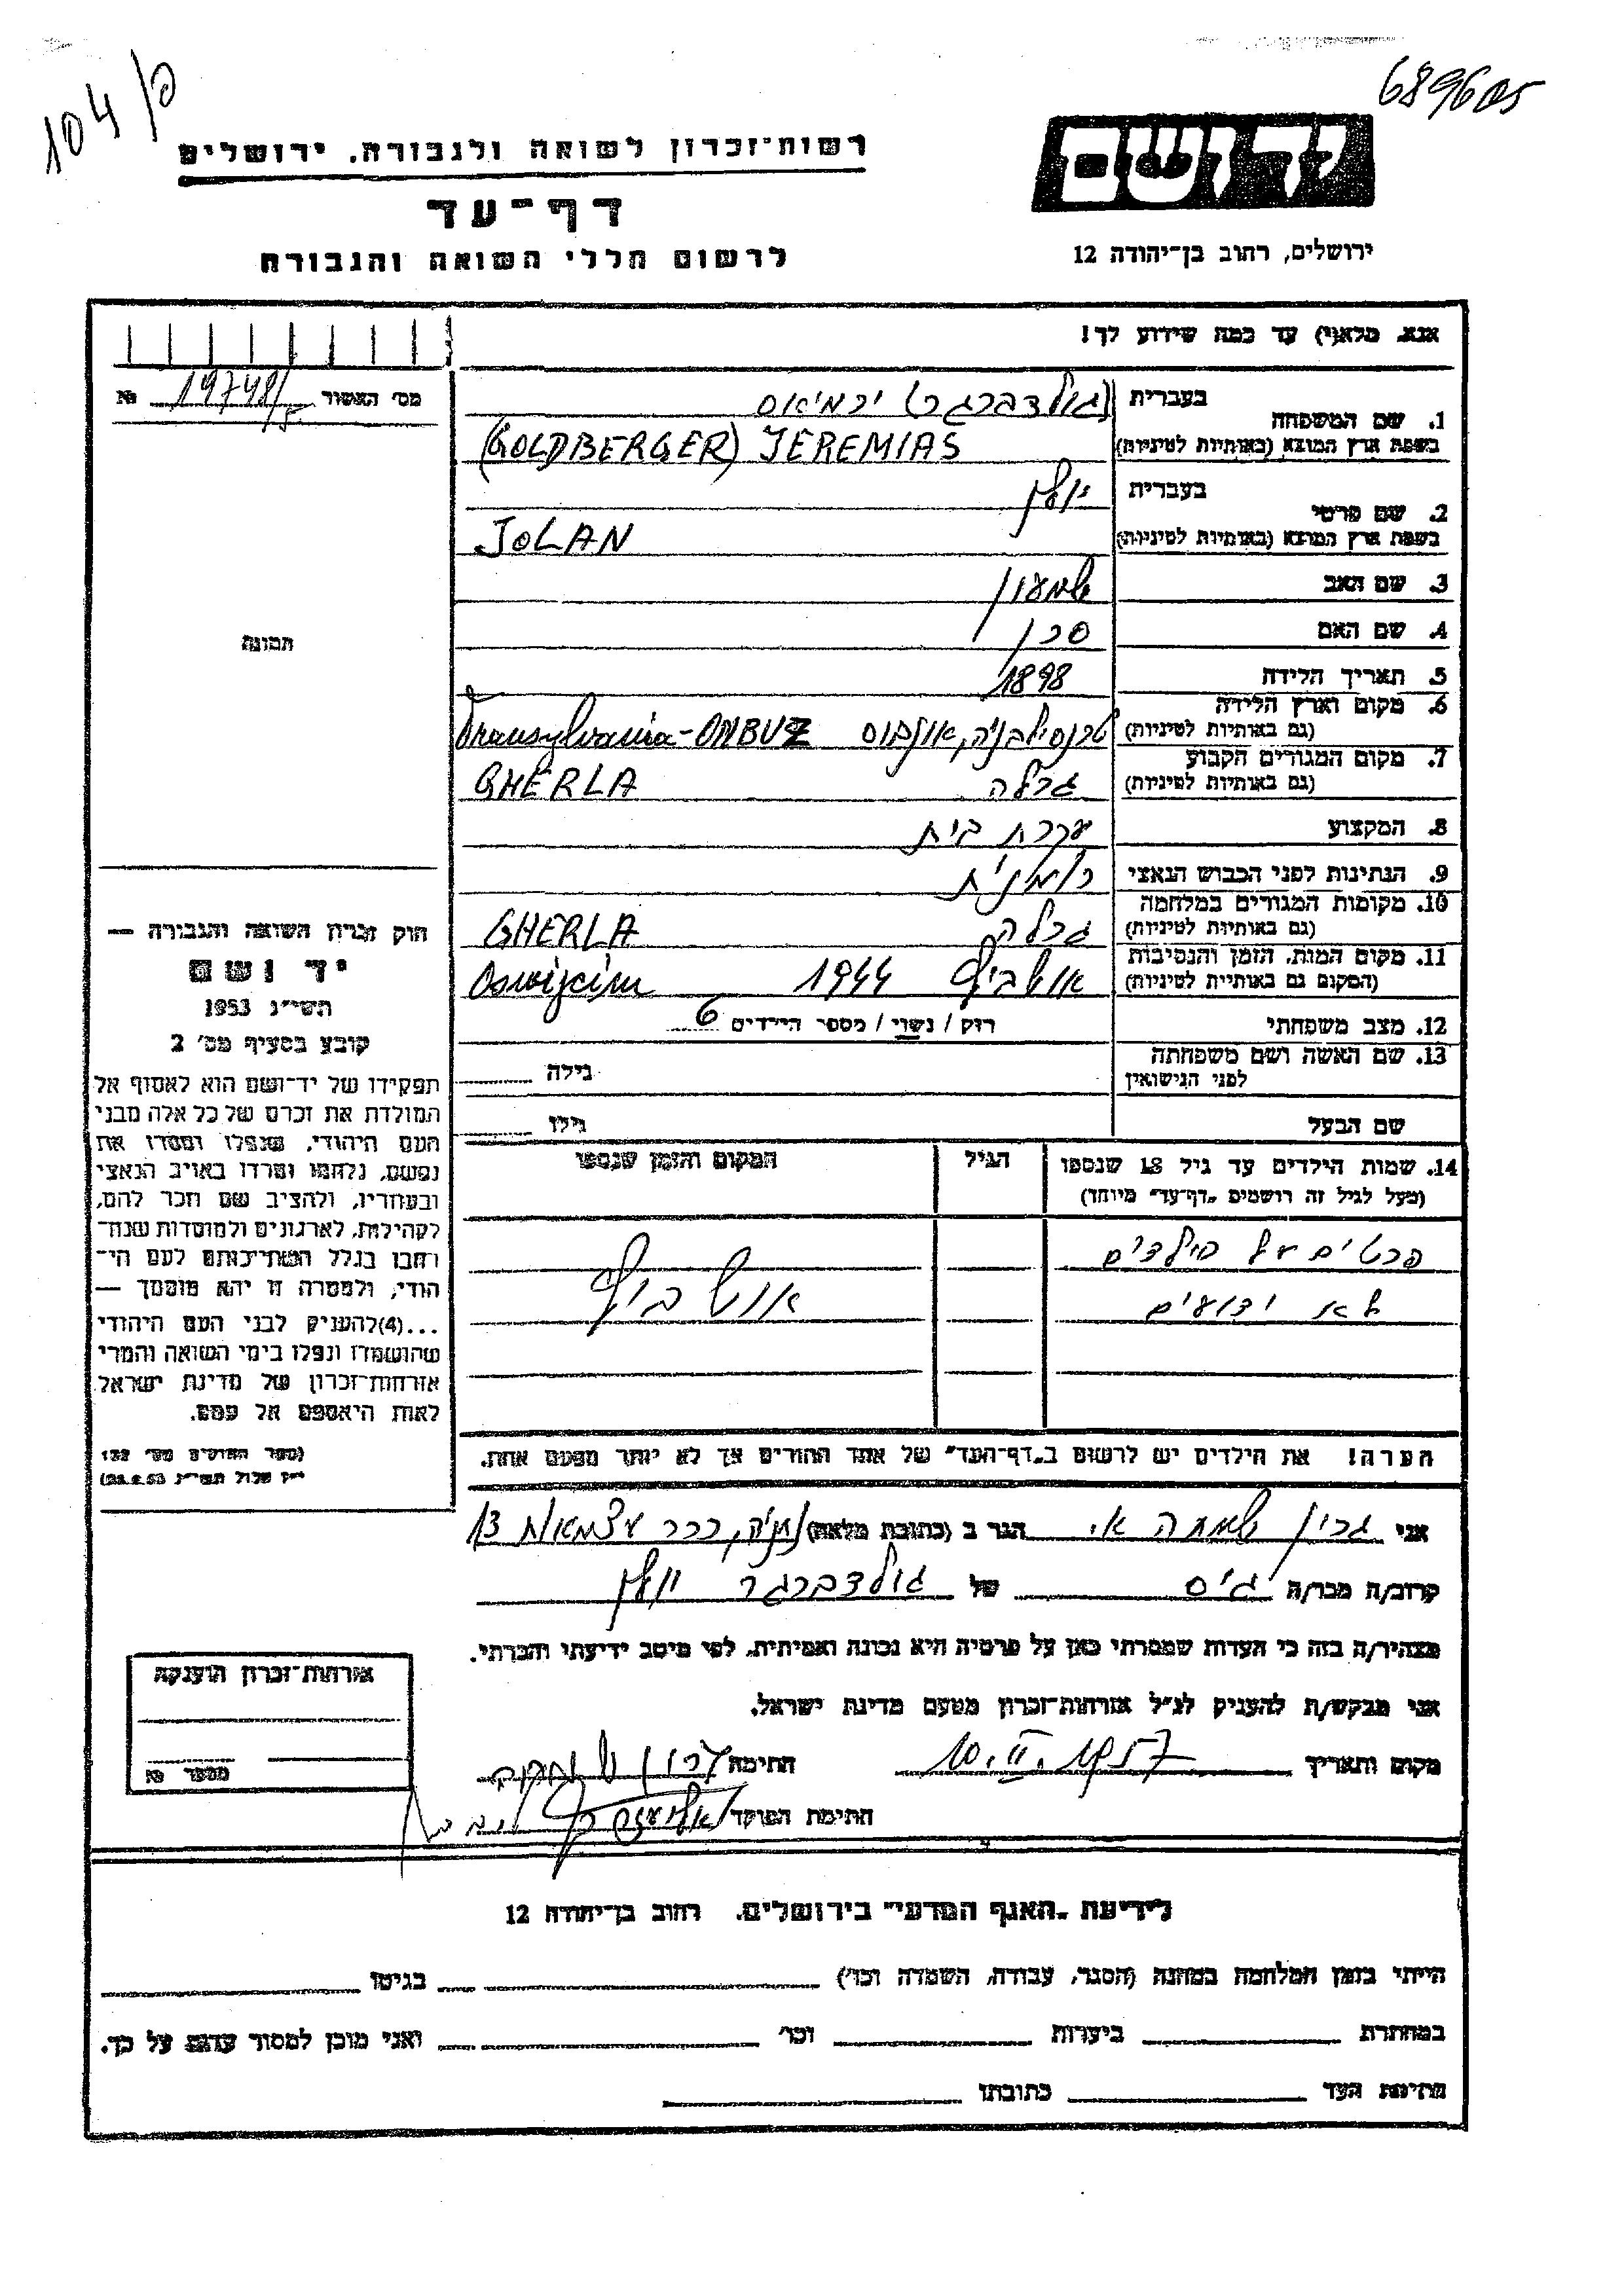 104/פ
689605
יד ושם
ירושלים, רחוב בן־יהודה 12
רשות־זכרון לשואה ולגבורה. ירושלים
דף־עד
לרשום חללי השואה והגבורה
אנא, מלא(י) עד כמה שידוע לך!
מס׳ האשור 19748/5 №
1. שם המשפחה
בעברית (גולדברגר) ירמיאס
בשפת ארץ המוצא (באותיות לטיניות) (GOLDBERGER) JEREMIAS
2. שם פרטי
בעברית יולן
בשפת ארץ המוצא (באותיות לטיניות) JOLAN
3. שם האב שמעון
4. שם האם
5. תאריך הלידה 1898
6. מקום וארץ הלידה
(גם באותיות לטיניות) טרנסילבניה, אומבוס Transylvania-OMBUZ
7. מקום המגורים הקבוע
(גם באותיות לטיניות) גרלה GHERLA
8. המקצוע עקרת בית
9. הנתינות לפני הכבוש הנאצי רומנית
10. מקומות המגורים במלחמה
(גם באותיות לטיניות) גרלה GHERLA
11. מקום המות, הזמן והנסיבות
(המקום גם באותיות לטיניות) אושביץ 1944
12. מצב משפחתי רוק / נשוי / מספר הילדים 6
13. שם האשה ושם משפחתה
לפני הנישואין גילה
שם הבעל גילו
14. שמות הילדים עד גיל 18 שנספו
(מעל לגיל זה רושמים „דף־עד״ מיוחד)
הגיל
המקום והזמן שנספו
פרטים על הילדים
לא ידועים
אושביץ
הערה! את הילדים יש לרשום ב„דף־העד״ של אחד ההורים אך לא יותר מפעם אחת.
תמונה
חוק זכרון השואה והגבורה —
יד ושם
תשי״ג 1953
קובע בסעיף מס׳ 2
תפקידו של יד־ושם הוא לאסוף אל
המולדת את זכרם של כל אלה מבני
העם היהודי, שנפלו ומסרו את
נפשם, נלחמו ומרדו באויב הנאצי
ובעוזריו, ולהציב שם וזכר להם,
לקהילות, לארגונים ולמוסדות שנח־
רבו בגלל השתייכותם לעם הי־
הודי, ולמטרה זו יהא מוסמך —
...(4)להעניק לבני העם היהודי
שהושמדו ונפלו בימי השואה והמרי
אזרחות־זכרון של מדינת ישראל
לאות היאספם אל עמם.
(ספר החוקים מס׳ 132
י״ז אלול תשי״ג 28.8.53)
אני גרין שמחה א. הגר ב (כתובת מלאה) נתניה, ככר עצמאות 13
קרוב/ה מכר/ה גיס של גולדברגר יולן
מצהיר/ה בזה כי העדות שמסרתי כאן על פרטיה היא נכונה ואמיתית, לפי מיטב ידיעתי והכרתי.
אני מבקש/ת להעניק לנ״ל אזרחות־זכרון מטעם מדינת ישראל.
מקום ותאריך 10.II.1957 חתימה
חתימת הפוקד
אזרחות־זכרון הוענקה
מספר №
לידיעת „האגף המדעי״ בירושלים. רחוב בן־יהודה 12
הייתי בזמן המלחמה במחנה (הסגר, עבודה, השמדה וכו׳) בגיטו
במחתרת ביערות וכו׳ ואני מוכן למסור עדות על כך.
חתימת העד כתובתו